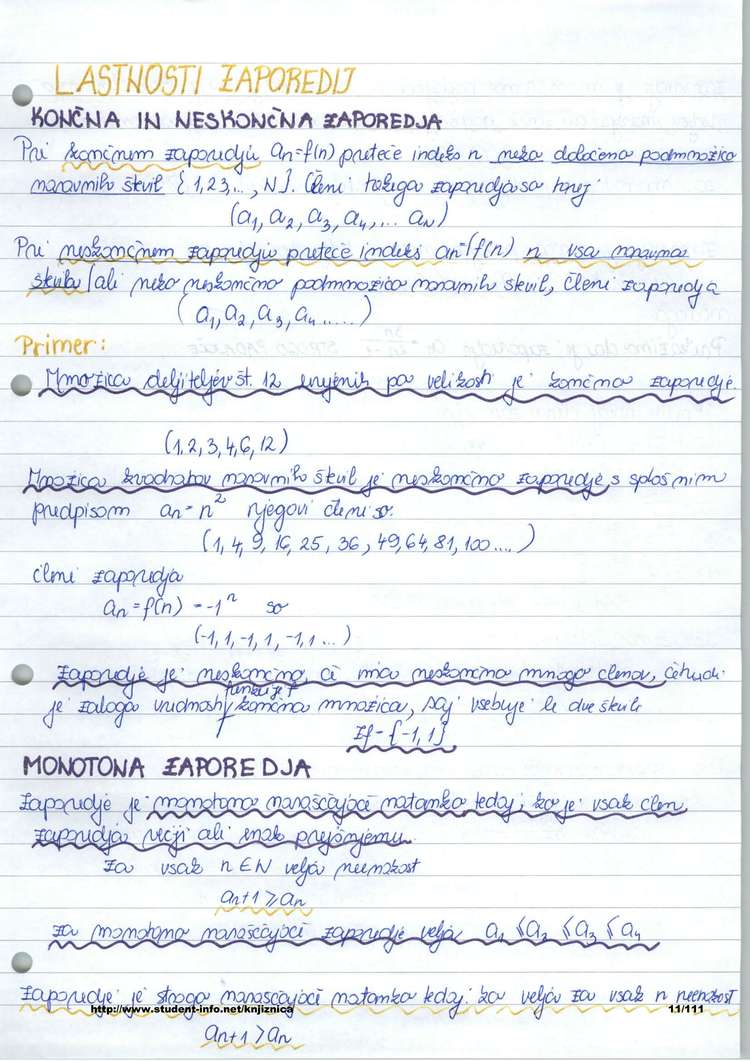 LASTNOSTI ZAPOREDIJ
KONČNA IN NESKONČNA ZAPOREDJA
Pri končnem zaporedju an=f(n) preteče indeks n neko določeno podmnožico
naravnih števil {1,2,3,.., N}. Členi takega zaporedja so torej:
(a₁, a₂, a₃, a₄,... aN)
Pri neskončnem zaporedju preteče indeks an=f(n) n vsa naravna
števila / ali neko neskončno podmnožico naravnih števil, členi zaporedja
(a₁, a₂, a₃, a₄......)
Primer:
Množica deliteljev št. 12 urejenih po velikosti je končno zaporedje.
(1,2,3,4,6,12)
Množica kvadratov naravnih števil je neskončno zaporedje s splošnim
predpisom an=n² njegovi členi so:
(1,4,9,16,25,36,49,64,81,100....)
členi zaporedja
an=f(n) = -1ⁿ so
(-1,1,-1,1,-1,1...)
Zaporedje je neskončno, če ima neskončno mnogo členov, četudi
funkcije f
je zaloga vrednosti končna množica, saj vsebuje le dve števili
Zf={-1,1}
MONOTONA ZAPOREDJA
Zaporedje je monotono naraščajoče natanko tedaj, ko je vsak člen
zaporedja večji ali enak prejšnjemu.
Za vsak n∈N velja neenakost
an+1 ⩾ an
Za monotono naraščajoče zaporedje velja a₁ ⩽ a₂ ⩽ a₃ ⩽ a₄
Zaporedje je strogo naraščajoče natanko tedaj. ko velja za vsak n neenakost
http://www.student-info.net/knjiznica 11/111
an+1 > an